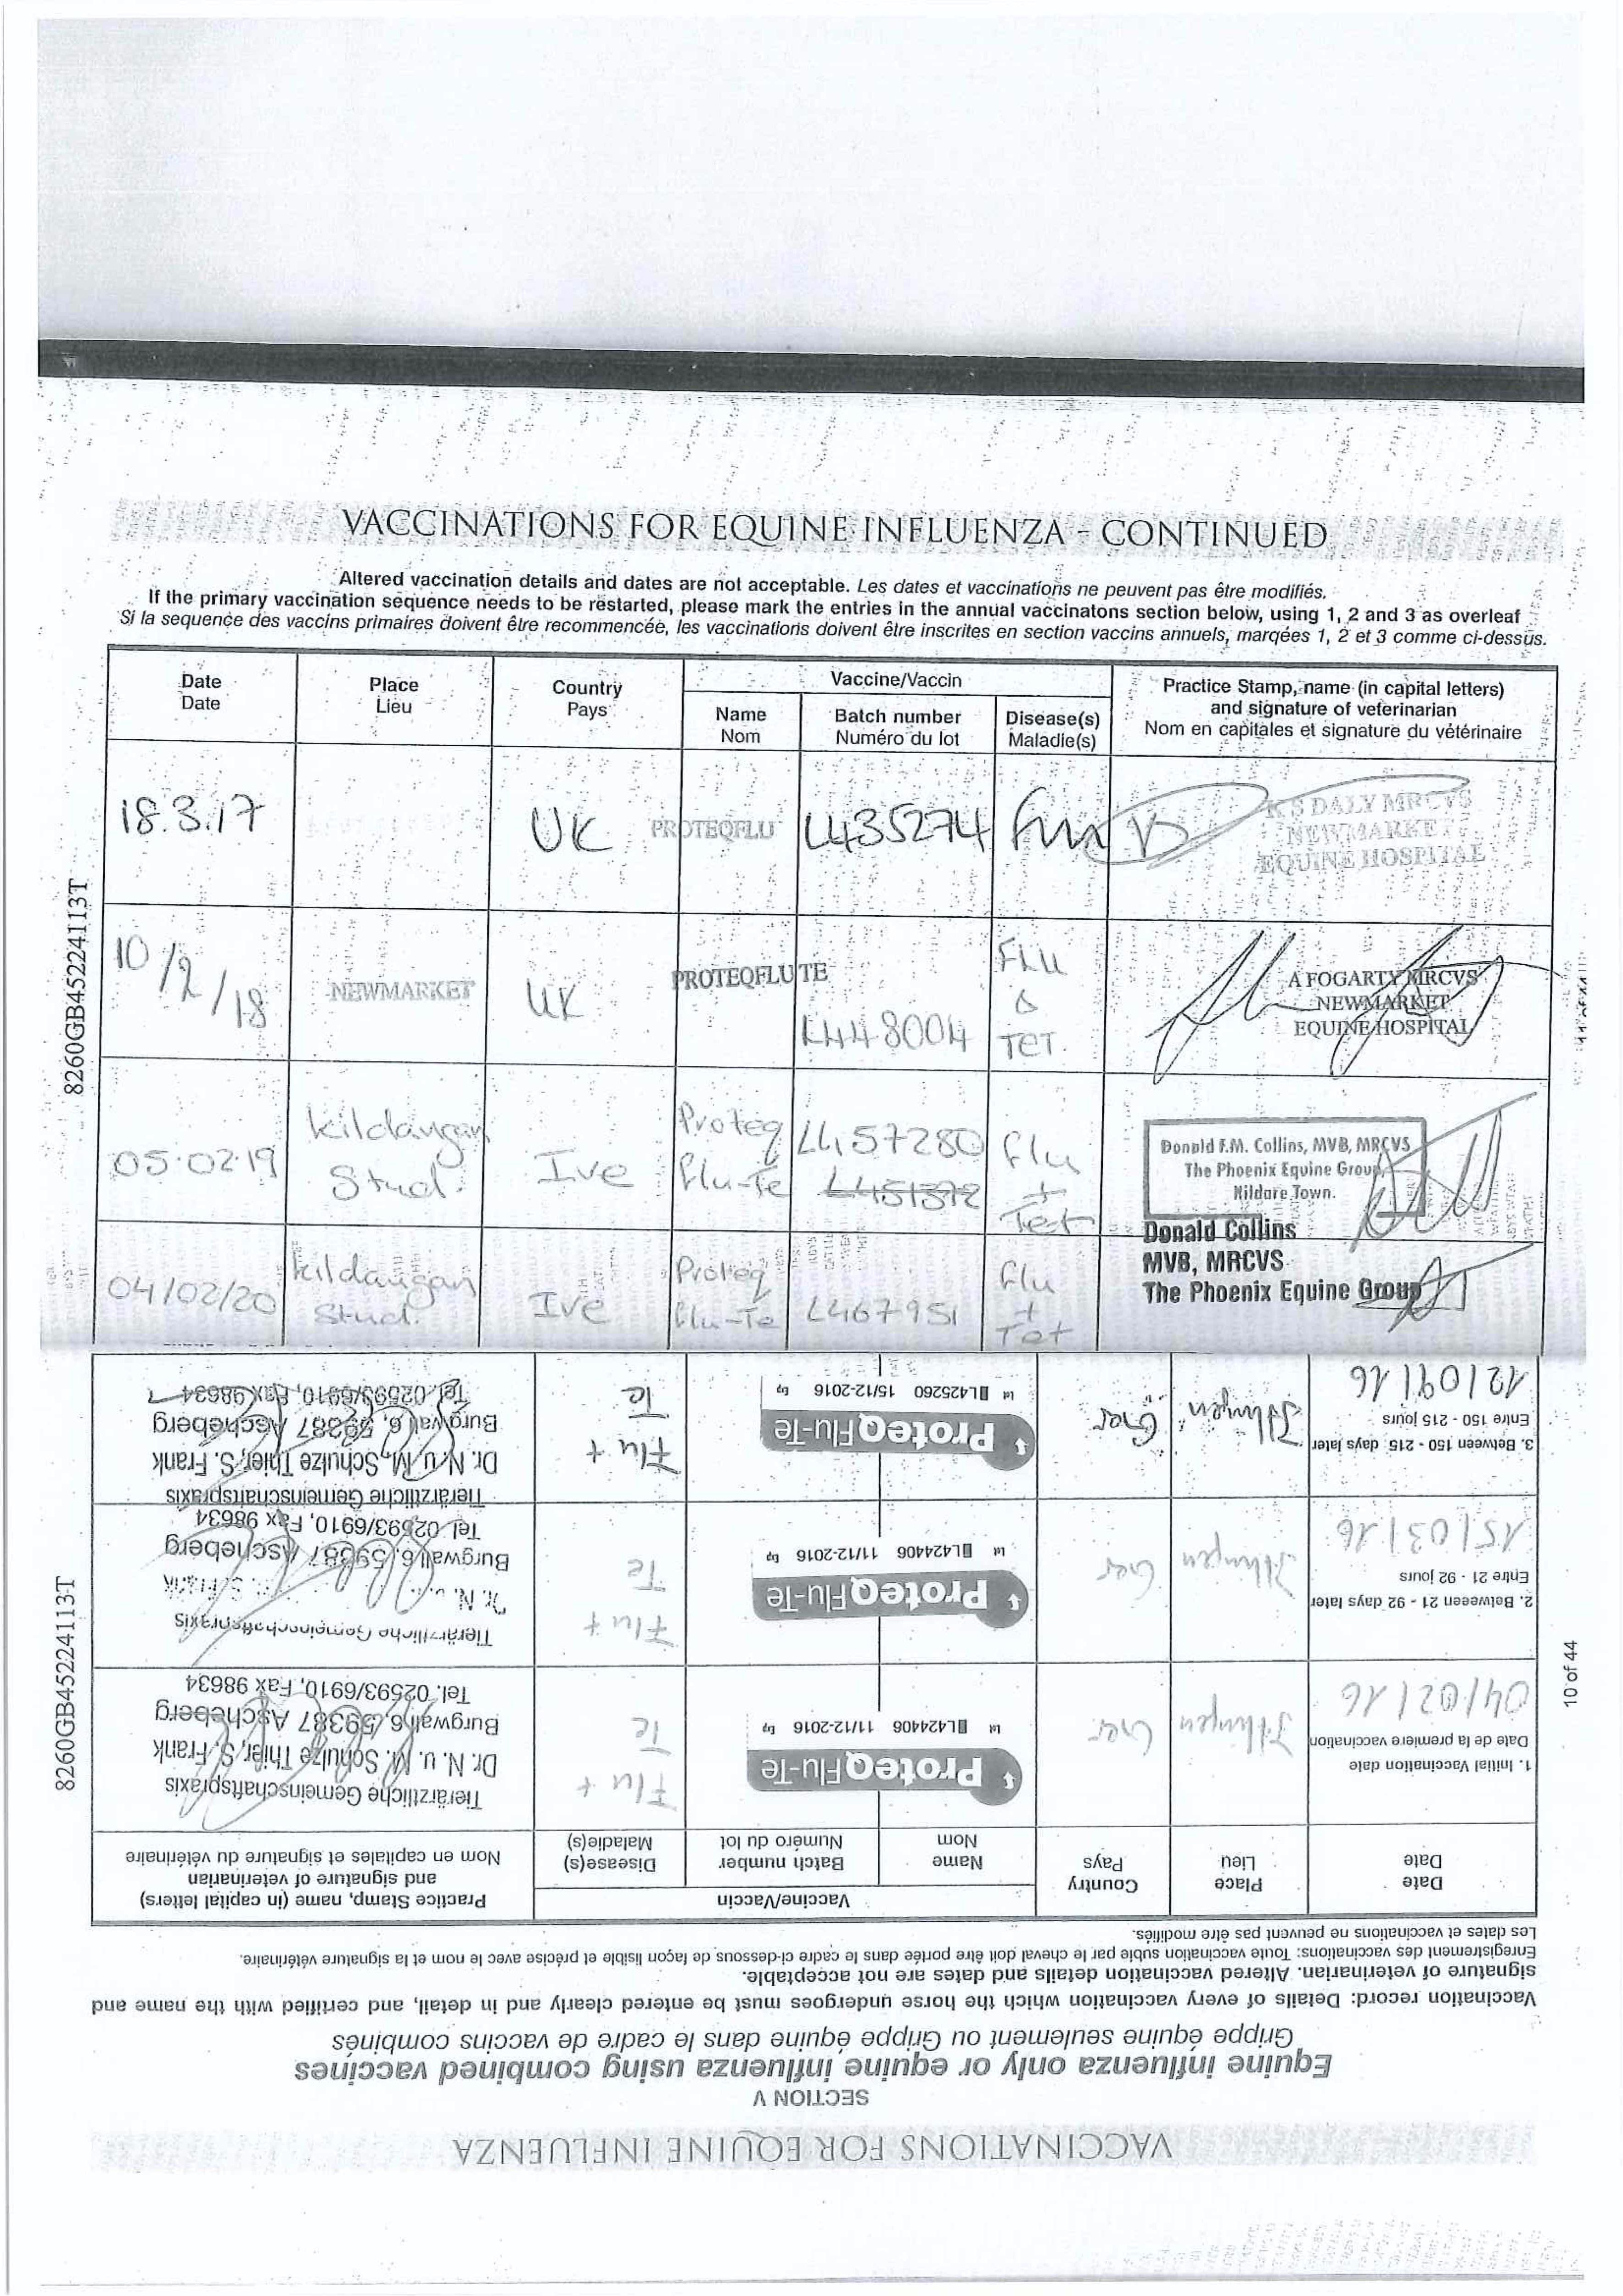 VACCINATIONS FOR EQUINE INFLUENZA - CONTINUED
Altered vaccination details and dates are not acceptable. Les dates et vaccinations ne peuvent pas être modifiés.
If the primary vaccination sequence needs to be restarted, please mark the entries in the annual vaccinatons section below, using 1, 2 and 3 as overleaf
Si la sequence des vaccins primaires doivent être recommencée, les vaccinations doivent être inscrites en section vaccins annuels, marqées 1, 2 et 3 comme ci-dessus.
Date
Date
Place
Lieu
Country
Pays
Vaccine/Vaccin
Name
Nom
Batch number
Numéro du lot
Disease(s)
Maladie(s)
Practice Stamp, name (in capital letters)
and signature of veterinarian
Nom en capitales et signature du vétérinaire
18.3.17
UK
PROTEQFLU
L435274
K S DALY MRCVS
NEWMARKET
EQUINE HOSPITAL
10/2/18
NEWMARKET
UK
PROTEQFLU TE
L448004
FLU
&
TET.
A FOGARTY MRCVS
NEWMARKET
EQUINE HOSPITAL
05.02.19
Kildangan
Stud.
Ire
Proteq
Flu-Te
L457280
L451372
Flu
+
Tet
Donald F.M. Collins, MVB, MRCVS
The Phoenix Equine Group,
Kildare Town.
04/02/20
Kildangan
Stud.
Ire
Proteq
Flu-Te
L467951
Flu
+
Tet
Donald Collins
MVB, MRCVS
The Phoenix Equine Group
8260GB452241113T
VACCINATIONS FOR EQUINE INFLUENZA
SECTION V
Equine influenza only or equine influenza using combined vaccines
Grippe équine seulement ou Grippe équine dans le cadre de vaccins combinés
Vaccination record: Details of every vaccination which the horse undergoes must be entered clearly and in detail, and certified with the name and
signature of veterinarian. Altered vaccination details and dates are not acceptable.
Enregistrement des vaccinations: Toute vaccination subie par le cheval doit être portée dans le cadre ci-dessous de façon lisible et précise avec le nom et la signature vétérinaire.
Les dates et vaccinations ne peuvent pas être modifiés.
Date
Date
Place
Lieu
Country
Pays
Vaccine/Vaccin
Name
Nom
Batch number
Numéro du lot
Disease(s)
Maladie(s)
Practice Stamp, name (in capital letters)
and signature of veterinarian
Nom en capitales et signature du vétérinaire
1. Initial Vaccination date
Date de la premiere vaccination
04/02/16
Ger
ProteqFlu-Te
Lot L424406 11/12-2016 Exp
Flu +
Te
Tierärztliche Gemeinschaftspraxis
Dr. N. u. M. Schulze Thier, S. Frank
Burgwall 6, 59387 Ascheberg
Tel. 02593/6910, Fax 98634
2. Betweeen 21 - 92 days later
Entre 21 - 92 jours
15/03/16
Ger
ProteqFlu-Te
Lot L424406 11/12-2016 Exp
Flu +
Te
Tierärztliche Gemeinschaftspraxis
Dr. N. u. S. Frank
Burgwall 6, 59387 Ascheberg
Tel. 02593/6910, Fax 98634
3. Between 150 - 215 days later
Entre 150 - 215 jours
12/09/16
Ger
ProteqFlu-Te
Lot L425260 15/12-2016 Exp
Flu +
Te
Tierärztliche Gemeinschaftspraxis
Dr. N. u. M. Schulze Thier, S. Frank
Burgwall 6, 59387 Ascheberg
Tel. 02593/6910, Fax 98634
8260GB452241113T
10 of 44